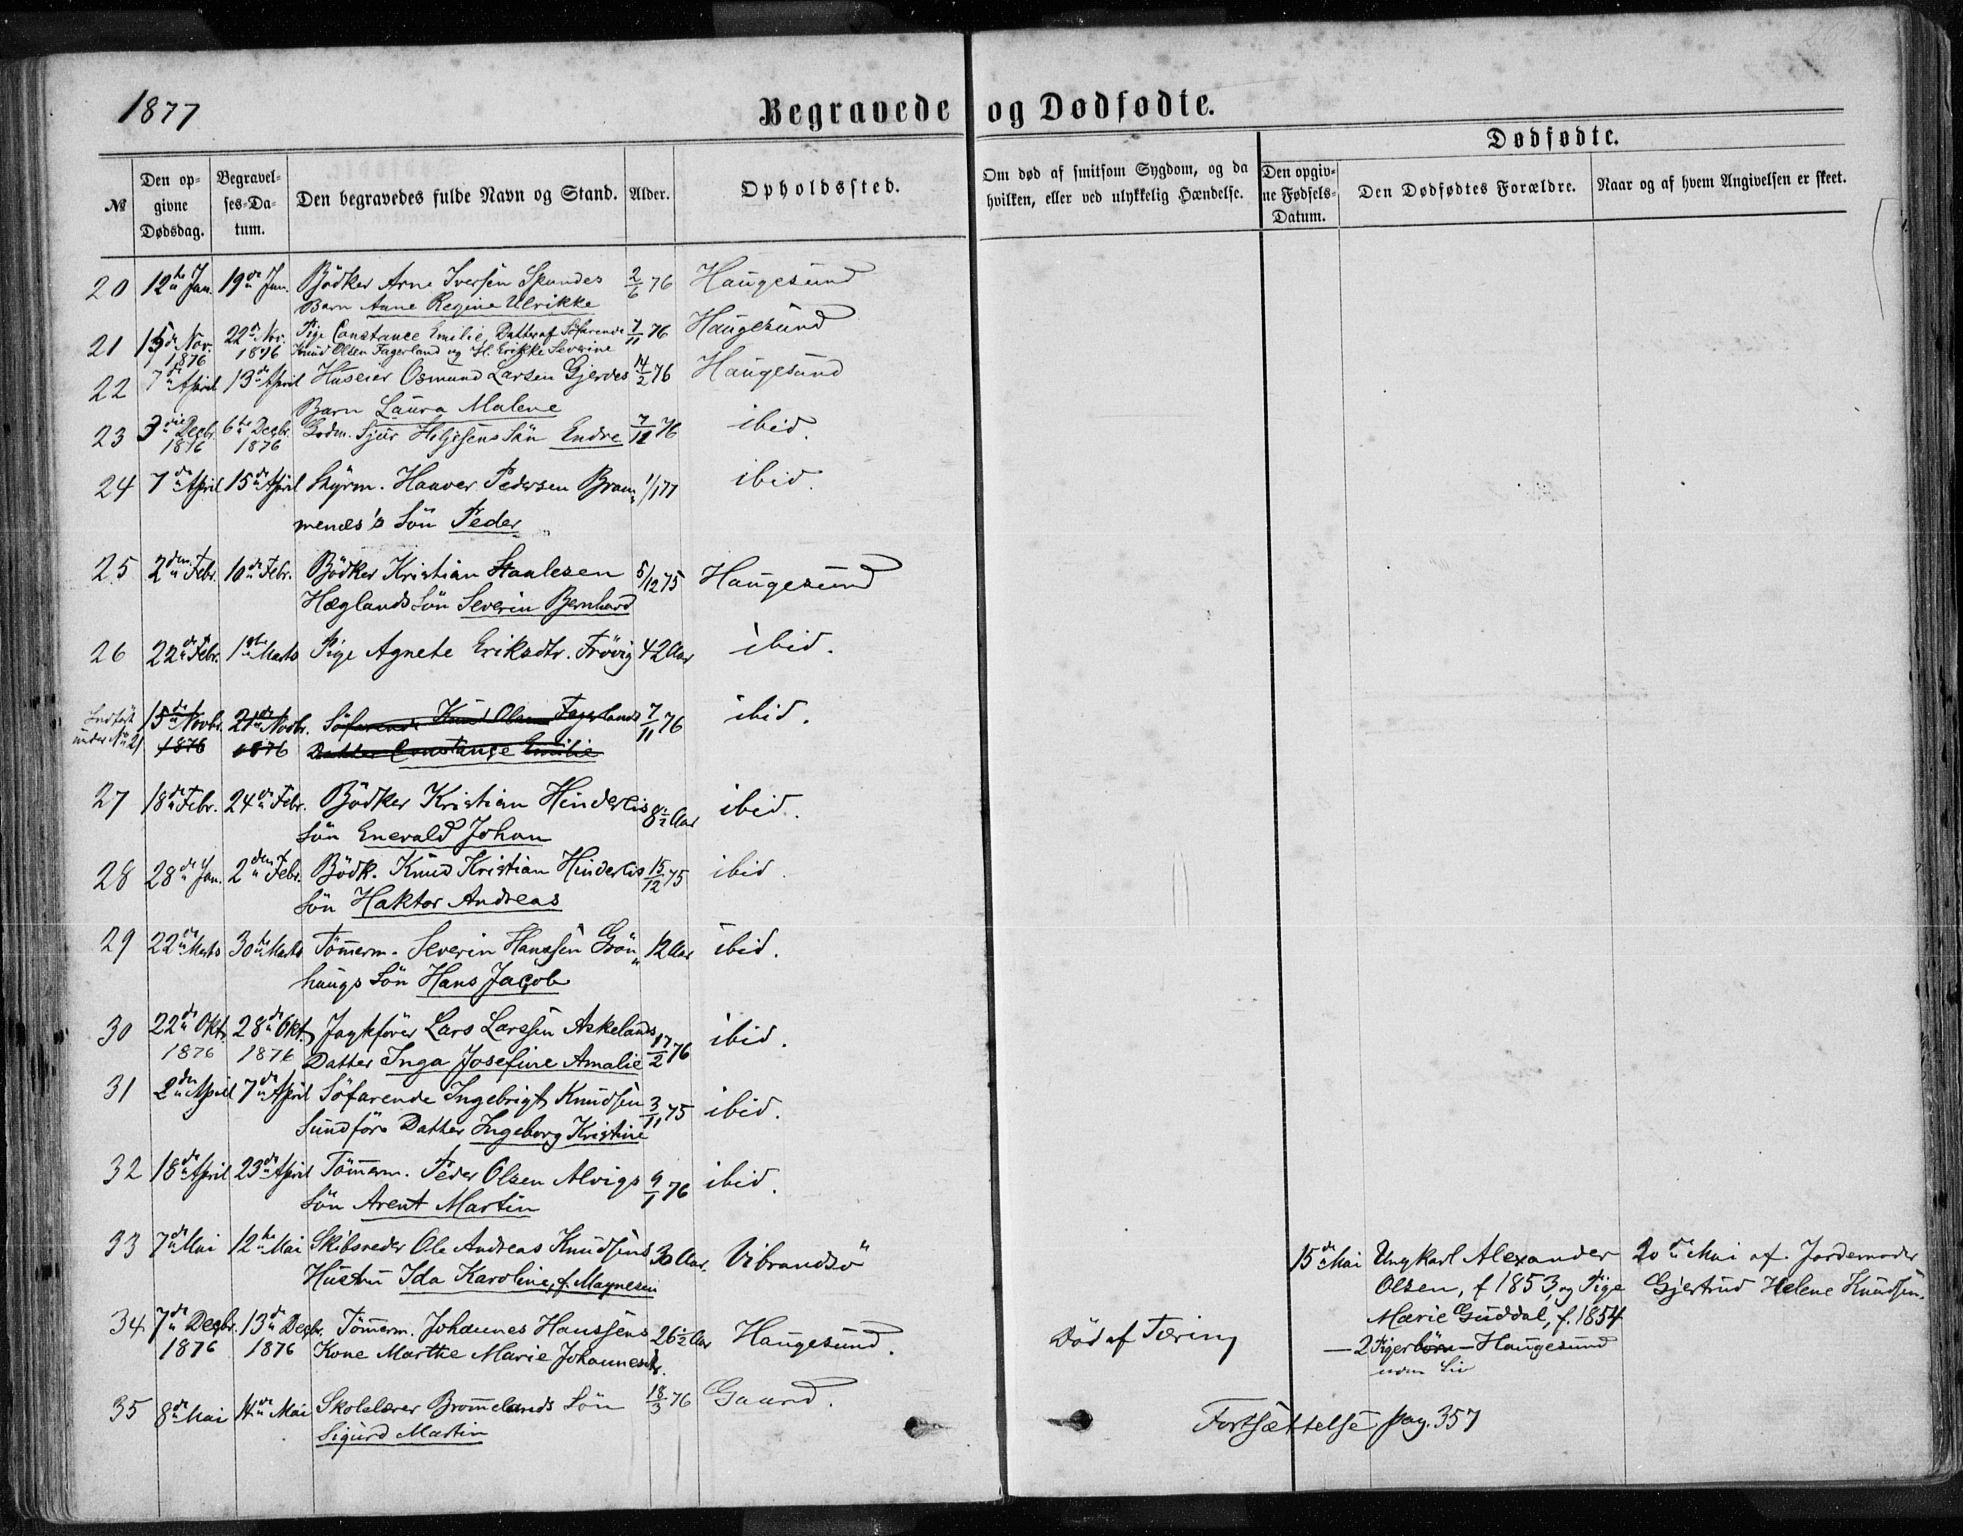 1877
Begravede og Dødfødte.
Dødfødte.
№
Den op-
givne
Dødsdag.
Begravel-
ses-Da-
tum.
Den begravedes fulde Navn og Stand.
Alder.
Opholdssted.
Om død af smitsom Sygdom, og da
hvilken, eller ved ulykkelig Hændelse.
Den opgiv-
ne Fødsels-
Datum.
Den Dødfødtes Forældre.
Naar og af hvem Angivelsen er skeet.
20 12te Jan. 19de Jan. Bödker Arne Iversen Spandes 2/6 76 Haugesund
Barn Anne Regine Ulrikke
21 15de Nov. 22de Nov. Pige Constance Emilie, Datter af Söfarende 7/11 76 Haugesund
1876 1876 Knud Olsen Fagerland og H. Erikke Severine
22 7de April 13de April Huseier Osmund Larsen Gjerdes 14/2 76 Haugesund
Barn Laura Malene
23 3die Decbr. 6te Decbr. Sjur Helgesens Sön Endre 7/11 76 ibid.
1876 1876
24 7de April 15de April Styrm. Hanver Pedersen Bram„ 1/1 77 ibid.
menæs's Sön Peder
25 2den Febr. 10de Febr. Bödker Kristian Staalesen 5/12 75 Haugesund
Hæglands Sön Severin Bernhard
26 22de Febr. 1ste Marts Pige Agnete Eriksdtr. Frövig 42 Aar ibid.
Indført 15de Novbr. 21de Novbr. Söfarende Knud Olsen Fagerlands 7/11 76 ibid.
under № 21 1876 1876 Datter Constance Emilie
27 18de Febr. 24de Febr. Bödker Kristian Hinderlis 8½ Aar ibid.
Sön Enevald Johan
28 28de Jan. 2den Febr. Bödk. Knud Kristian Hinderlis 15/12 75 ibid.
Sön Haktor Andreas
29 22de Marts 30te Marts Tömerm. Severin Hanssen Grön„ 12 Aar ibid.
haugs Sön Hans Jacob
30 22de Okt. 28de Okt. Jagtfører Lars Larssen Askelands 17/2 76 ibid.
1876 1876 Datter Inga Josefine Amalie
31 2den April 7de April Söfarende Ingebrigt Knudsen 3/11 75 ibid.
Sundförs Datter Ingeborg Kristine
32 18de April 23de April Tömerm. Peder Olsen Alvigs 9/1 76 ibid.
Sön Arent Martin
33 7de Mai 12te Mai Skibsreder Ole Andreas Knudsens 30 Aar Vibrandsö
Hustru Ida Karoline, f. Magnesen
15de Mai Ungkarl Alexander 20de Mai af Jordemoder
Olsen, f 1853, og Pige Gjertrud Helene Knudsen.
Marie Guddal, f. 1854
— 2 Pigebörn — Haugesund
uden Liv
34 7de Decbr. 13de Decbr. Tömerm. Johannes Hanssens 26½ Aar Haugesund. Död af Tæring
1876 1876 Kone Marthe Marie Johannesdtr.
35 8de Mai 14de Mai Skolelærer Brommelands Sön 18/3 76 Gaard.
Sigurd Martin
Fortsættelse pag. 357